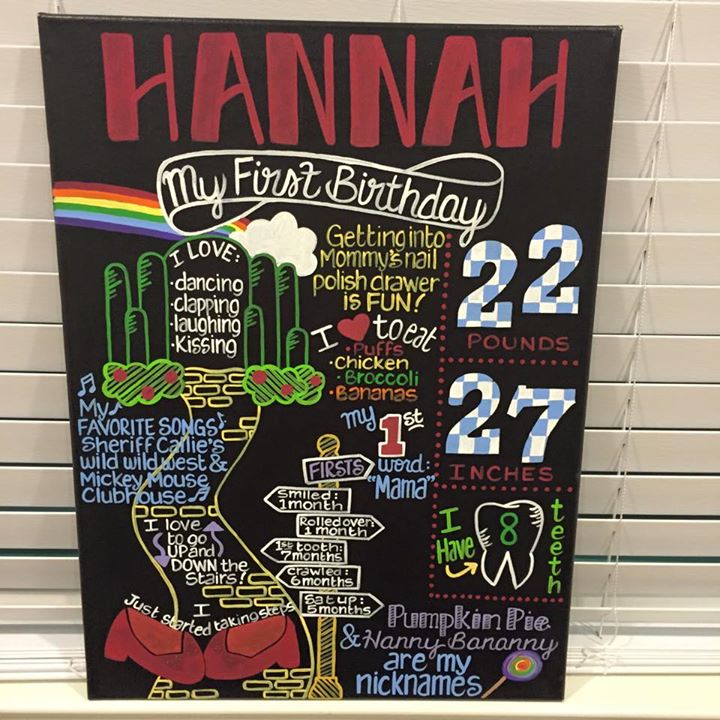 HANNAH
My First Birthday
I LOVE:
·dancing
·clapping
·laughing
·Kissing
Getting into
Mommy's nail
polish drawer
is FUN!
I ❤ to eat
·Puffs
·Chicken
·Broccoli
·Bananas
22
POUNDS
27
INCHES
I Have 8 teeth
My
FAVORITE SONGS
Sheriff Callie's
wild wild west &
Mickey Mouse
Clubhouse
my 1st
word:
"Mama"
FIRSTS
Smiled:
1 month
Rolled over:
1 month
1st tooth:
7 months
crawled:
6 months
Sat up:
5 months
I love
to go
UP and
DOWN the
Stairs!
I
Just started taking steps
Pumpkin Pie
& Hanny Bananny
are my
nicknames